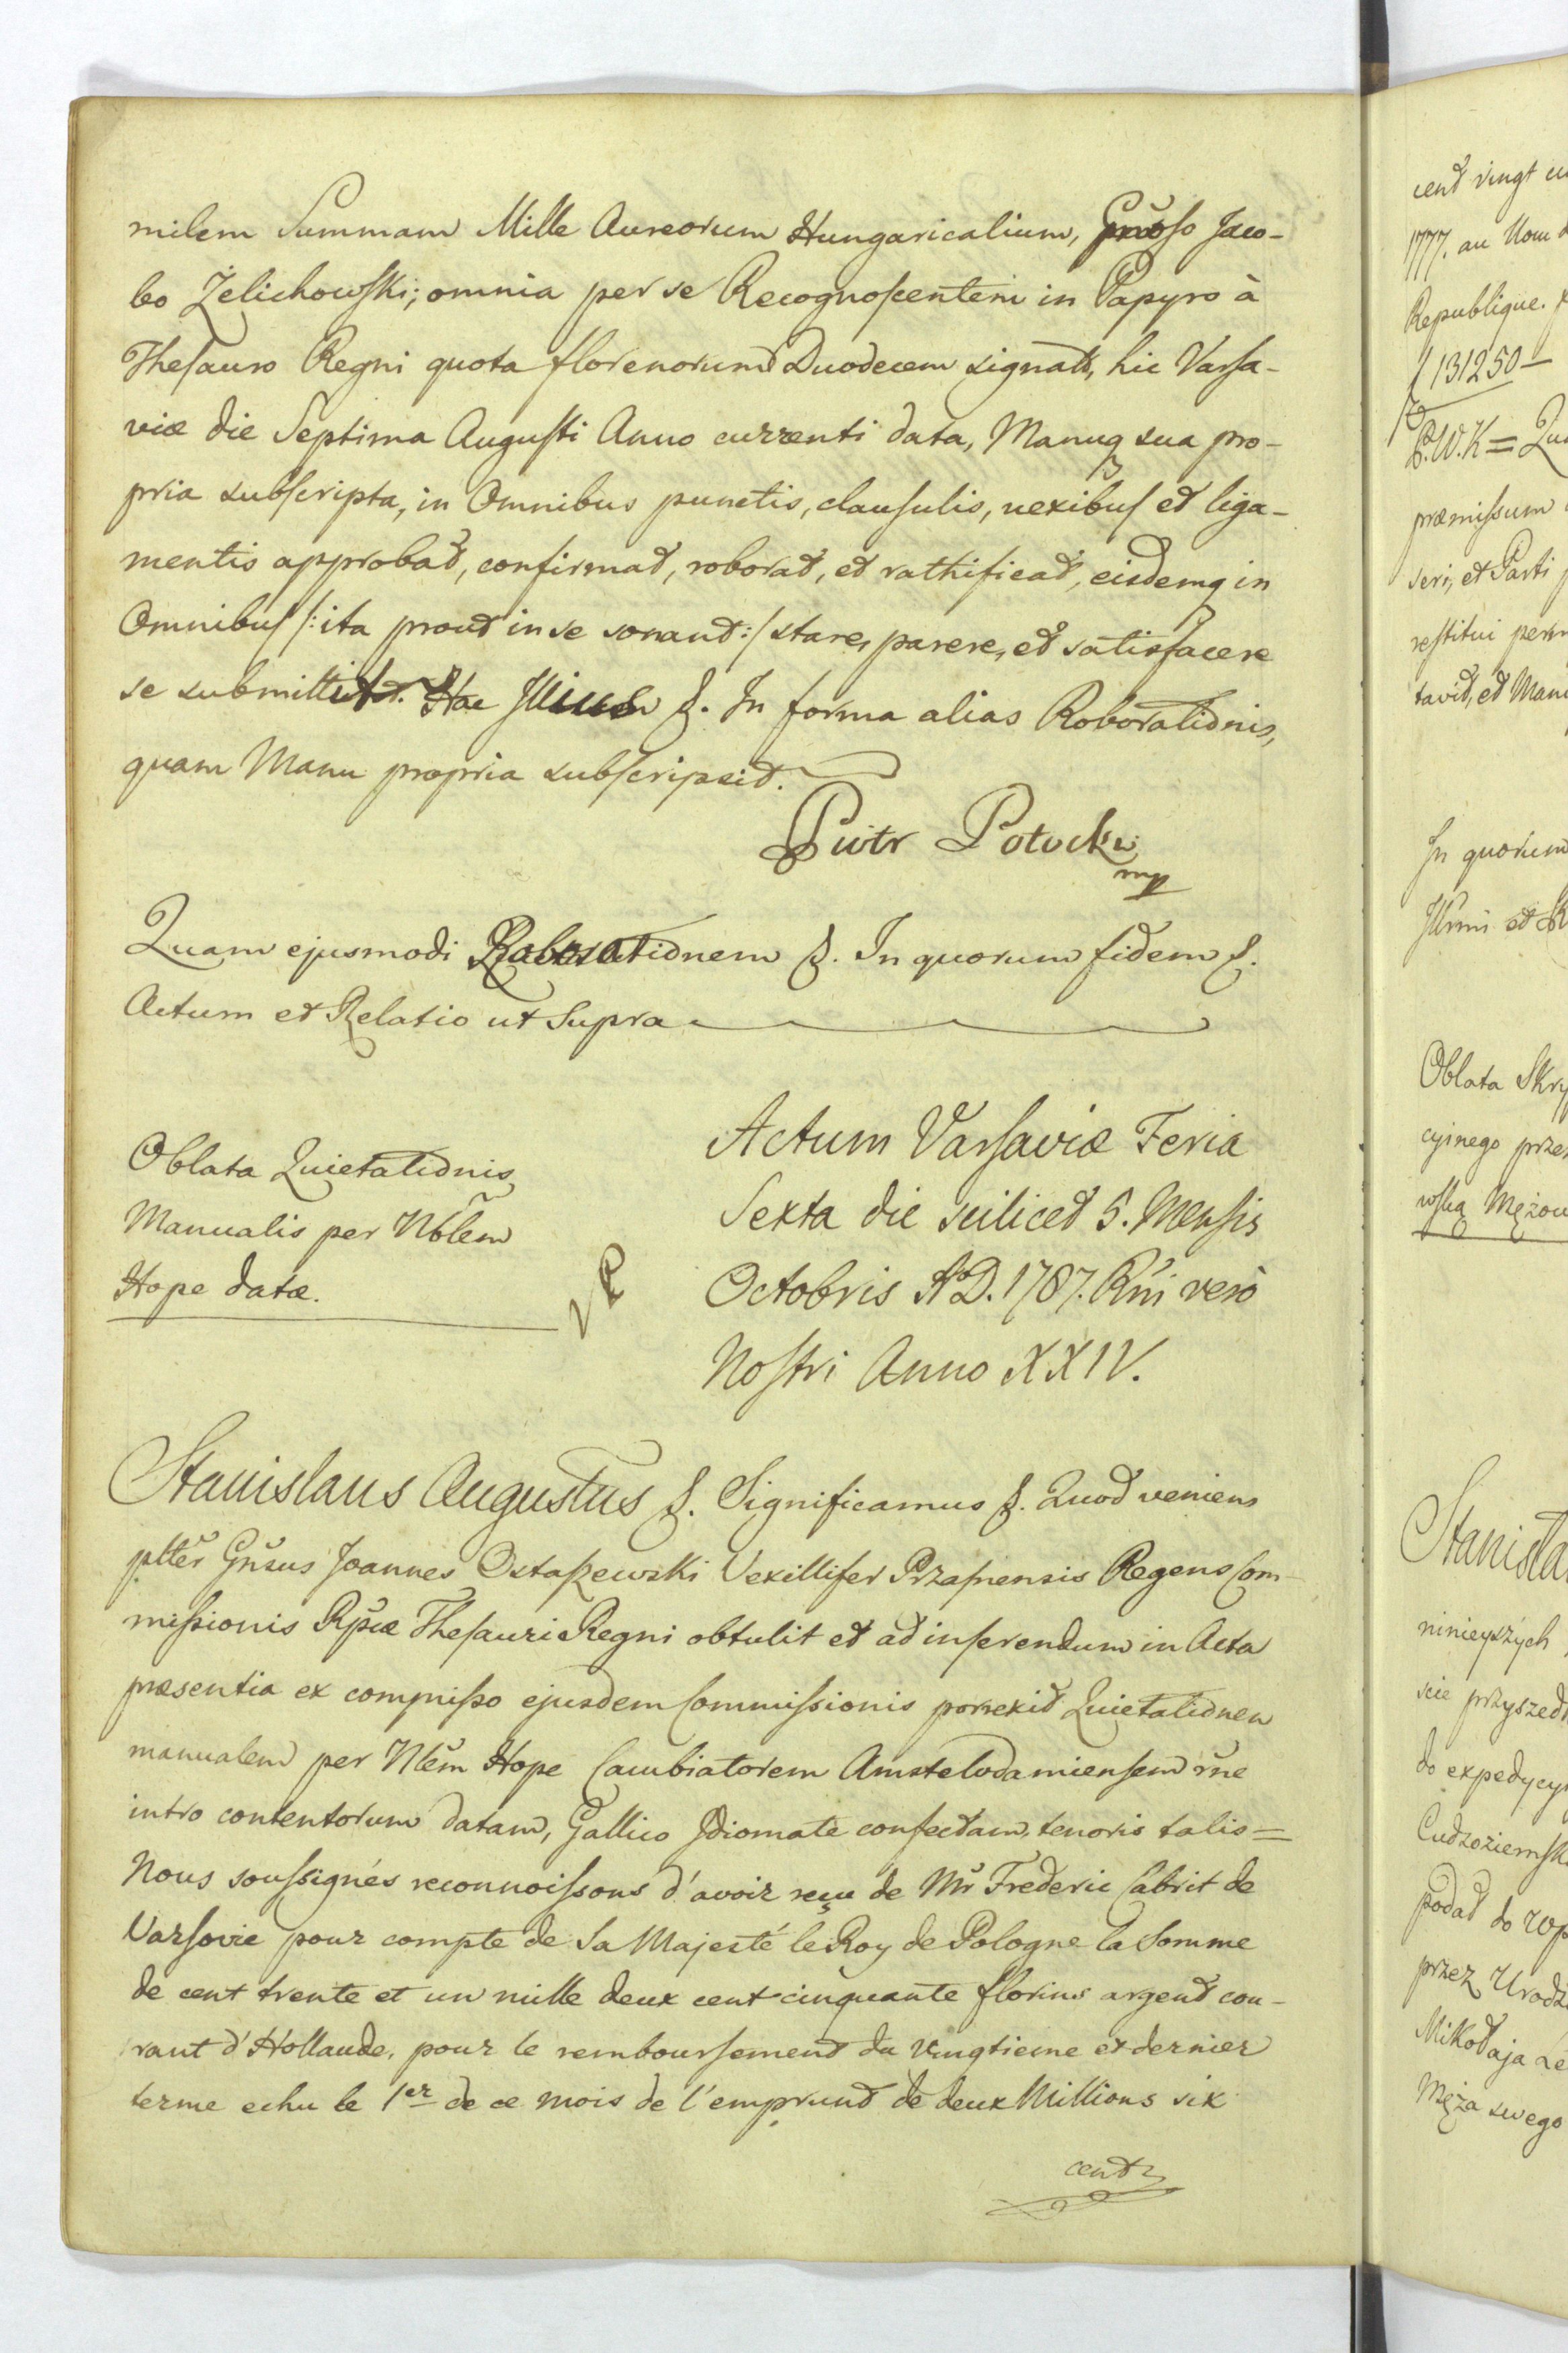 milem Summam Mille Aureorum Hungaricalium, Gnoso Jaco-
bo Żelichowski; omnia per se Recognoscentem in Papyro à
Thesauro Regni quota florenorum Duodecem signata, hic Varsa-
viæ die Septima Augusti Anno currenti data, Manuq sua pro-
pria subscripta, in Omnibus punctis, clausulis, nexibus et liga-
mentis approbat, confirmat, roborat, et rathificat, eisdemq in
Omnibus /: ita prout in se sonant :/ stare, parere, et satisfacere
se submittit. Hac &. In forma alias Roborationis,
quam Manu propria subscripsit.
Piotr Potocki
mp
Quam ejusmodi Roborationem &. In quorum fidem &.
Actum et Relatio ut Supra
Oblata Quietationis
Manualis per Nblem
Hope datæ.
Actum Varsaviæ Feria
Sexta die scilicet 5. Mensis
Octobris A.D. 1787. Rni verò
Nostri Anno XXIV.
Stanislaus Augustus &. Significamus &. Quod veniens
pltter Gnsus Joannes Ostaszewski Vexillifer Przasnensis Regens Com-
missionis Rpcæ Thesauri Regni obtulit et ad inserendum in Acta
præsentia ex compisso ejusdem Commissionis porrexit Quietationem
manualem per Nlem Hope Cambiatorem Amstelodamiensem rne
intro contentorum datam, Gallico Idiomate confectam, tenoris talis =
Nous soussignés reconnoissons d'avoir reçu de Mr Frederic Cabrit de
Varsovie pour compte de Sa Majesté le Roy de Pologne la Somme
de cent trente et un mille deux cent cinquante florins argent cou-
rant d'Hollande, pour le remboursement du vingtieme et dernier
terme echu le 1er de ce mois de l'emprunt de deux Millions six
cent
cent vingt
1777. au Nom
Republique.
f 131250 –
P.W.K =
præmissum
seri, et Parti
restitui
tavit, et
In quorum
Oblata
cyjnego
wską
ninieyszych
scie
do
podał do
przez
Mikołaja
Męża swego